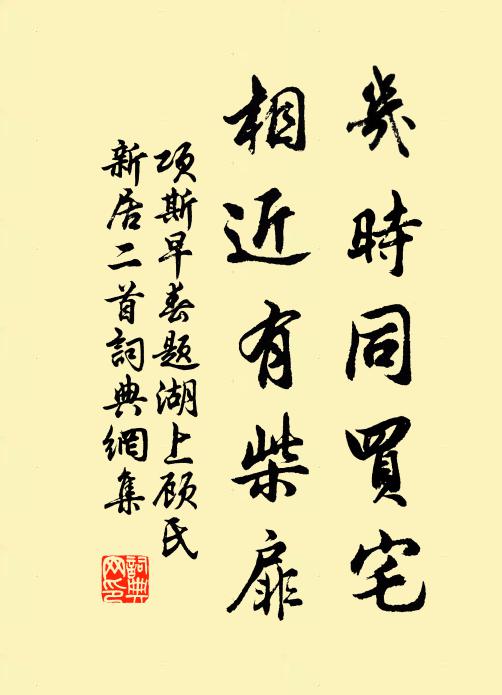 幾時同買宅
相近有柴扉
項斯早春題湖上顧氏
新居二首詞典網集
詞典
網印